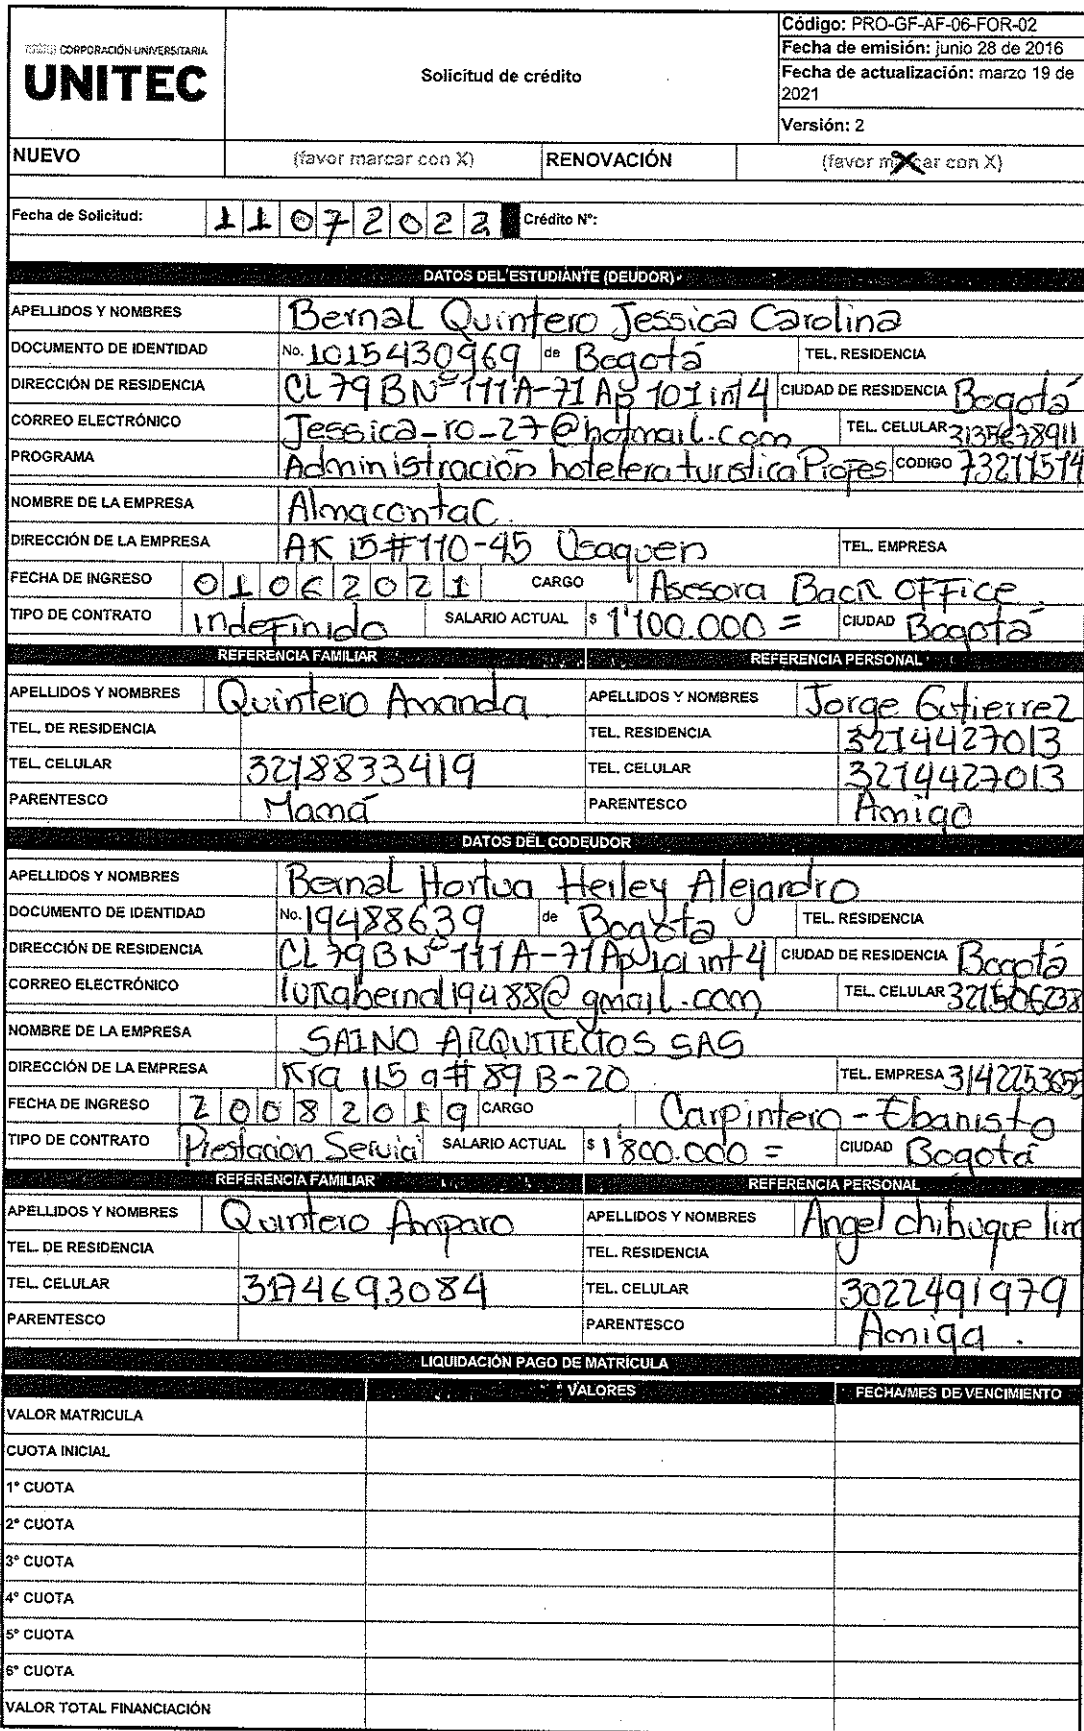 Código: PRO-GF-AF-06-FOR-02
CORPORACIÓN UNIVERSITARIA
UNITEC
Solicitud de crédito
Fecha de emisión: junio 28 de 2016
Fecha de actualización: marzo 19 de 2021
Versión: 2
NUEVO (favor marcar con X) RENOVACIÓN (favor marcar con X) X
Fecha de Solicitud: 11072022 Crédito N°:
DATOS DEL ESTUDIANTE (DEUDOR)
APELLIDOS Y NOMBRES Bernal Quintero Jessica Carolina
DOCUMENTO DE IDENTIDAD No. 1015430969 de Bogotá TEL. RESIDENCIA
DIRECCIÓN DE RESIDENCIA CL 79 B N° 111A-71 Ap 101 int 4 CIUDAD DE RESIDENCIA Bogotá
CORREO ELECTRÓNICO Jessica_ro_27@hotmail.com TEL. CELULAR 3135678911
PROGRAMA Administración hotelera turística CODIGO 73211514
NOMBRE DE LA EMPRESA AlmacontaC.
DIRECCIÓN DE LA EMPRESA AK 15 # 110-45 Usaquen TEL. EMPRESA
FECHA DE INGRESO 01062021 CARGO Asesora Back OFFice.
TIPO DE CONTRATO indeFinido SALARIO ACTUAL $ 1'100.000 = CIUDAD Bogotá
REFERENCIA FAMILIAR REFERENCIA PERSONAL
APELLIDOS Y NOMBRES Quintero Amanda. APELLIDOS Y NOMBRES Jorge Gutierrez
TEL. DE RESIDENCIA TEL. RESIDENCIA 3214427013
TEL. CELULAR 3218833419 TEL. CELULAR 3214427013
PARENTESCO Mamá PARENTESCO Amigo
DATOS DEL CODEUDOR
APELLIDOS Y NOMBRES Bernal Hortua Heiley Alejandro
DOCUMENTO DE IDENTIDAD No. 19488639 de Bogota TEL. RESIDENCIA
DIRECCIÓN DE RESIDENCIA CL 79 B N° 111A-71 Ap 101 int 4 CIUDAD DE RESIDENCIA Bogotá
CORREO ELECTRÓNICO lukabernal19488@gmail.com TEL. CELULAR 321506238
NOMBRE DE LA EMPRESA SAINO ARQUITECTOS SAS
DIRECCIÓN DE LA EMPRESA Kra 115 a # 89 B-20 TEL. EMPRESA
FECHA DE INGRESO 20082019 CARGO Carpintero - Ebanista
TIPO DE CONTRATO Prestacion Servici SALARIO ACTUAL $ 1'800.000 = CIUDAD Bogotá
REFERENCIA FAMILIAR REFERENCIA PERSONAL
APELLIDOS Y NOMBRES Quintero Amparo APELLIDOS Y NOMBRES Angel chibuque
TEL. DE RESIDENCIA TEL. RESIDENCIA
TEL. CELULAR 3174693084 TEL. CELULAR 3022491979
PARENTESCO PARENTESCO Amiga.
LIQUIDACIÓN PAGO DE MATRÍCULA
VALORES FECHA/MES DE VENCIMIENTO
VALOR MATRICULA
CUOTA INICIAL
1° CUOTA
2° CUOTA
3° CUOTA
4° CUOTA
5° CUOTA
6° CUOTA
VALOR TOTAL FINANCIACIÓN